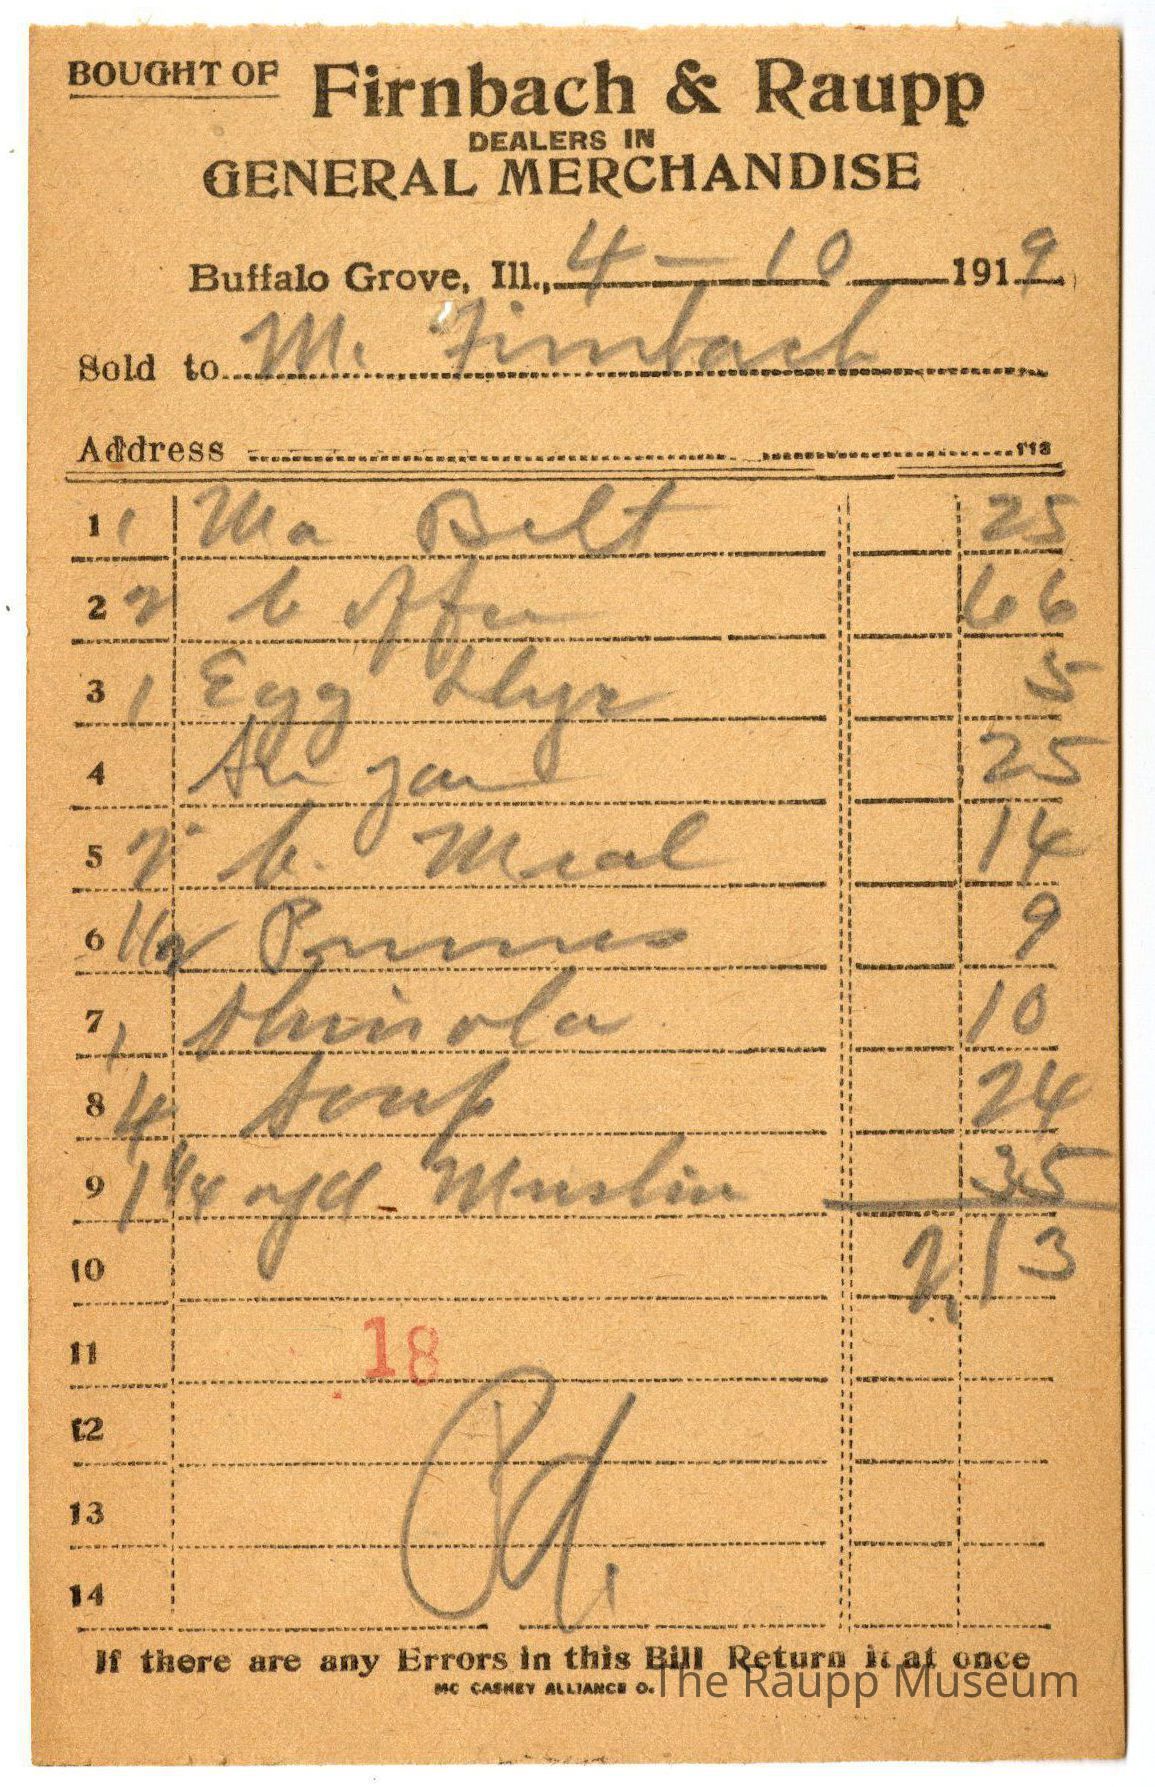 BOUGHT OF Firnbach & Raupp
DEALERS IN
GENERAL MERCHANDISE
Buffalo Grove, Ill., 4 - 10 1919
Sold to M. Firnbach
Address
1 1 Ma Belt 25
2 2 66
3 1 Egg 5
4 25
5 2 Meal 14
6 1 1/2 Prunes 9
7 1 Shinola 10
8 4 Soap 24
9 1 1/4 yd Muslin 35
10 2 13
11 18
12
13 Pd.
14
If there are any Errors in this Bill Return it at once
MC CASKEY ALLIANCE O.
The Raupp Museum